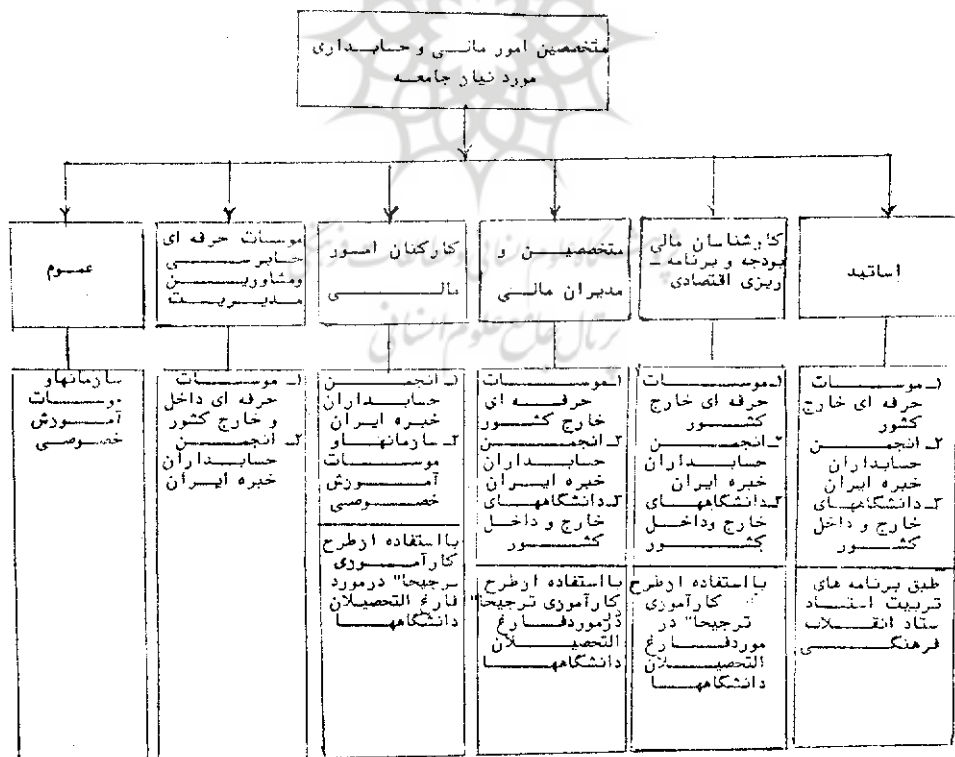 متخصصین امور مالی و حسابداری
مورد نیاز جامعه
اساتید
کارشناسان مالی
بودجه و برنامه ـ
ریزی اقتصادی
متخصصین و
مدیران مالی
کارکنان امور
مالی
موسسات حرفه ای
حسابرسی
ومشاورین
مدیریت
عموم
۱ـ موسسات
حرفه ای خارج
کشور
۲ـ انجمن
حسابداران
خبره ایران
۳ـ دانشگاههای
خارج و داخل
کشور
طبق برنامه های
تربیت استاد
ستاد انقلاب
فرهنگی
۱ـ موسسات
حرفه ای خارج
کشور
۲ـ انجمن
حسابداران
خبره ایران
۳ـ دانشگاههای
خارج وداخل
کشور
بااستفاده ازطرح
کارآموزی
ترجیحا" در
موردفارغ
التحصیلان
دانشگاهها
۱ـ موسسات
حرفه ای
خارج کشور
۲ـ انجمن
حسابداران
خبره ایران
۳ـ دانشگاههای
خارج و داخل
کشور
بااستفاده ازطرح
کارآموزی ترجیحا"
درموردفارغ
التحصیلان
دانشگاهها
۱ـ انجمن
حسابداران
خبره ایران
۲ـ سازمانهاو
موسسات
آموزش
خصوصی
بااستفاده ازطرح
کارآموزی
ترجیحا" درمورد
فارغ التحصیلان
دانشگاهها
۱ـ موسسات
حرفه ای داخل
و خارج کشور
۲ـ انجمن
حسابداران
خبره ایران
سازمانهاو
موسسات
آموزش
خصوصی
پژوهشگاه علوم انسانی و مطالعات فرهنگی
پرتال جامع علوم انسانی